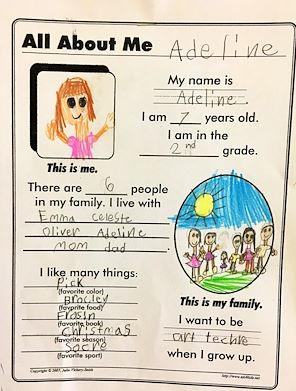 All About Me Adeline
My name is
Adeline.
I am 7 years old.
I am in the
2nd grade.
This is me.
There are 6 people
in my family. I live with
Emma Celeste
Oliver Adeline
mom dad
I like many things:
Pick
(favorite color)
(favorite food)
(favorite book)
Christmas
(favorite season)
Socre
(favorite sport)
This is my family.
I want to be
art techre
when I grow up.